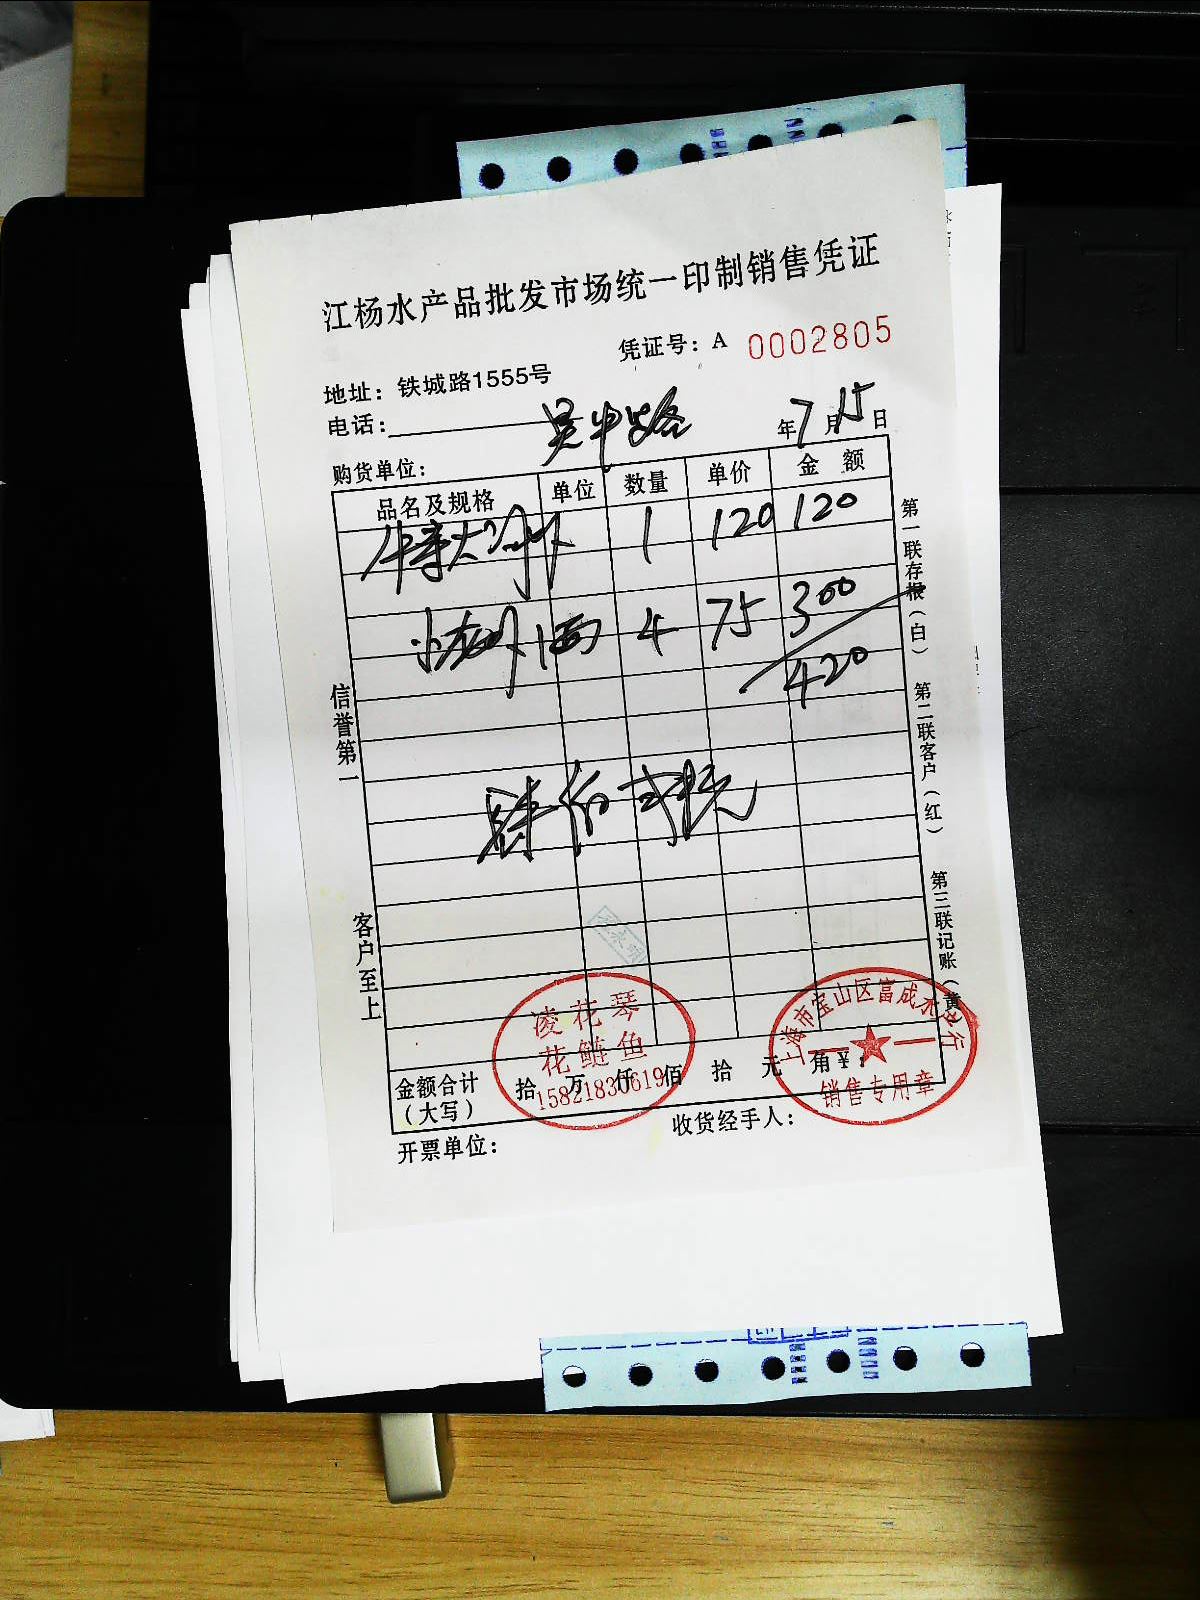 江杨水产品批发市场统一印制销售凭证
凭证号：A 0002805
地址：铁城路1555号
电话：
吴中路
年7月15日
购货单位：
品名及规格 单位 数量 单价 金额
1 120 120
1两 4 75 300
420
肆佰弍拾元
信誉第一
客户至上
第一联存根（白）
第二联客户（红）
第三联记账（黄）
凌花琴
花鲢鱼
15821830619
上海市宝山区富成水产行
销售专用章
金额合计（大写） 拾 万 仟 佰 拾 元 角 ¥：
开票单位：
收货经手人：